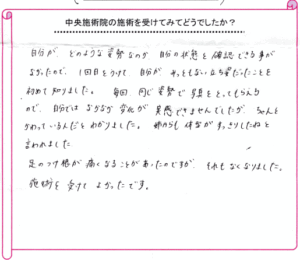 中央施術院の施術を受けてみてどうでしたか？
自分が どのような姿勢なのか 自分の状態を確認できる事が
なかったので、1回目をうけて 自分が すっともない立ち姿だったことを
初めて知りました。 毎回 同じ姿勢で 写真をとってもらえる
ので、自分では なかなか 変化が 実感できませんでしたが、ちゃんと
かわっているんだと わかりました。 姉からも 体型がすっきりしたねと
言われました
足のつけ根が 痛くなることがあったのですが、それもなくなりました。
施術を 受けて よかったです。